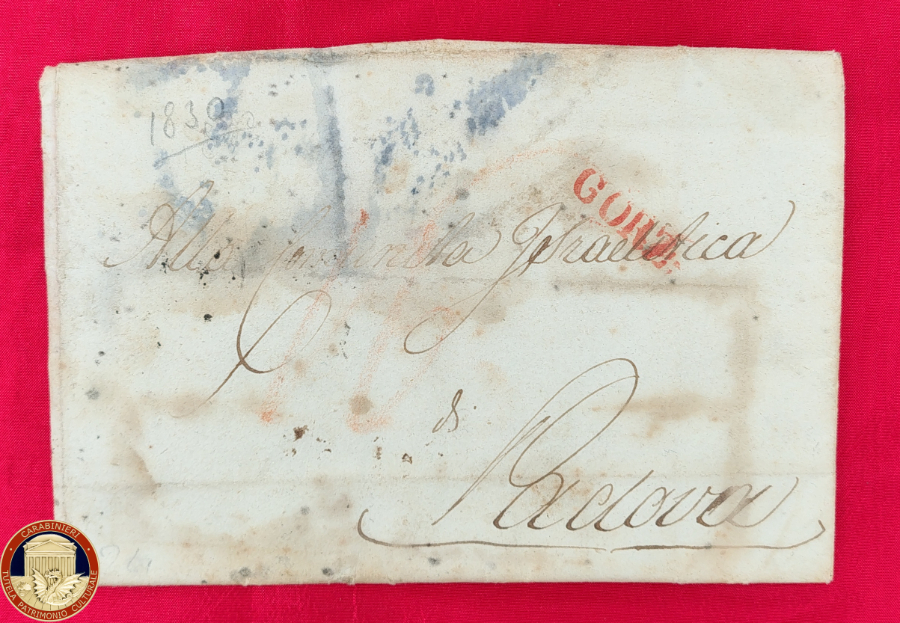 1830
GORZ
Alla Israelitica
di
Padova
CARABINIERI
TUTELA PATRIMONIO CULTURALE